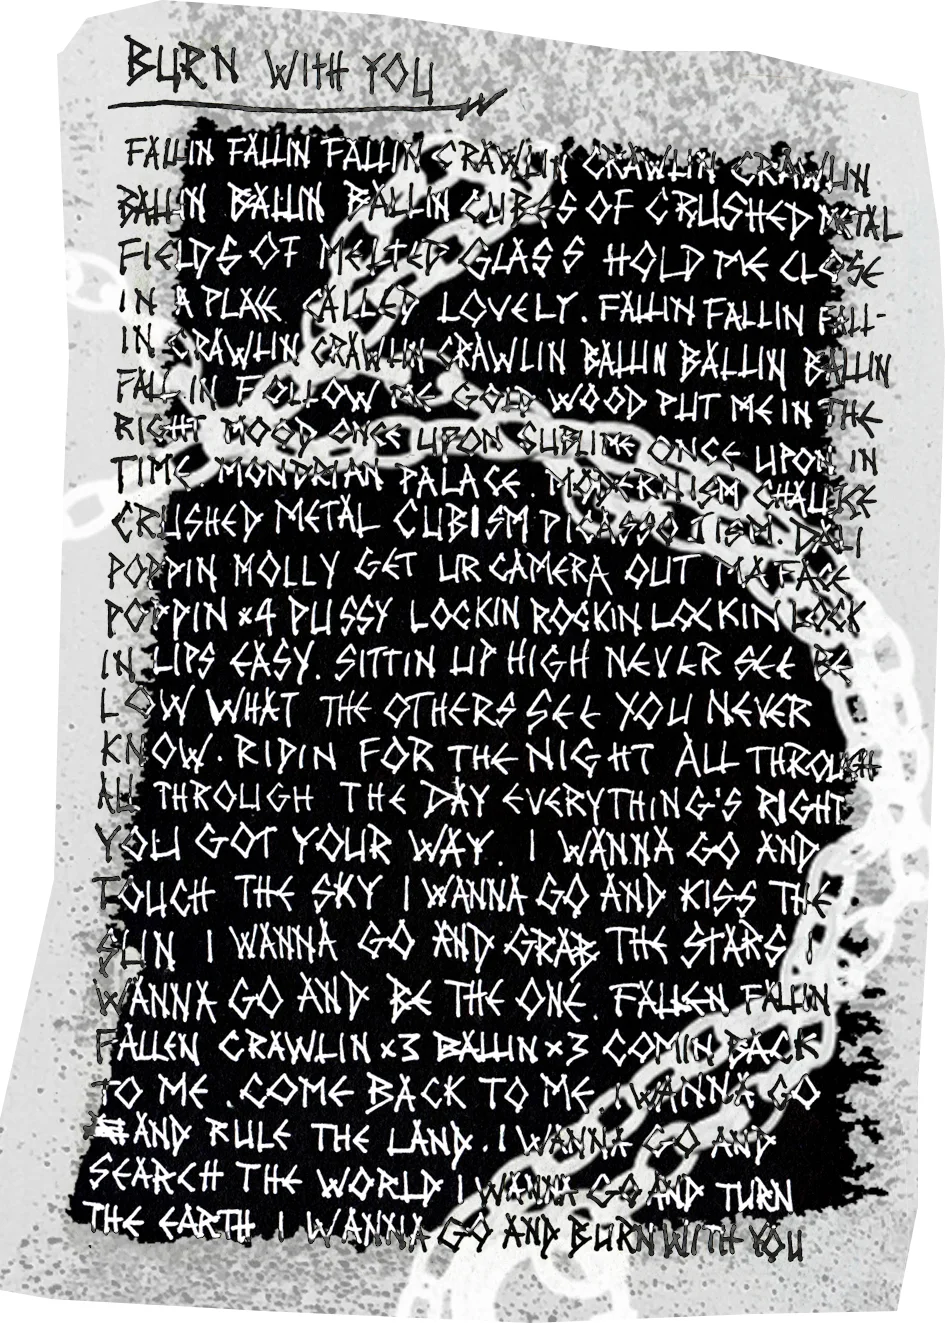 BURN WITH YOU
FALLIN FALLIN FALLIN CRAWLIN CRAWLIN CRAWLIN
BALLIN BALLIN BALLIN CUBES OF CRUSHED METAL
FIELDS OF MELTED GLASS HOLD ME CLOSE
IN A PLACE CALLED LOVELY. FALLIN FALLIN FALL-
IN CRAWLIN CRAWLIN CRAWLIN BALLIN BALLIN BALLIN
FALL IN FOLLOW ME GOLD WOOD PUT ME IN THE
RIGHT MOOD ONCE UPON SUBLIME ONCE UPON IN
TIME MONDRIAN PALACE. MODERNISM CHALLICE
CRUSHED METAL CUBISM PICASSO JISM. DALI
POPPIN MOLLY GET UR CAMERA OUT MA FACE
POPPIN x4 PUSSY LOCKIN ROCKIN LOCKIN LOCK
IN LIPS EASY. SITTIN UP HIGH NEVER SEE BE
LOW WHAT THE OTHERS SEE YOU NEVER
KNOW. RIDIN FOR THE NIGHT ALL THROUGH
ALL THROUGH THE DAY EVERYTHING'S RIGHT
YOU GOT YOUR WAY. I WANNA GO AND
TOUCH THE SKY I WANNA GO AND KISS THE
SUN I WANNA GO AND GRAB THE STARS I
WANNA GO AND BE THE ONE. FALLEN FALLIN
FALLEN CRAWLIN x3 BALLIN x3 COMIN BACK
TO ME. COME BACK TO ME. I WANNA GO
AND RULE THE LAND. I WANNA GO AND
SEARCH THE WORLD I WANNA GO AND TURN
THE EARTH I WANNA GO AND BURN WITH YOU